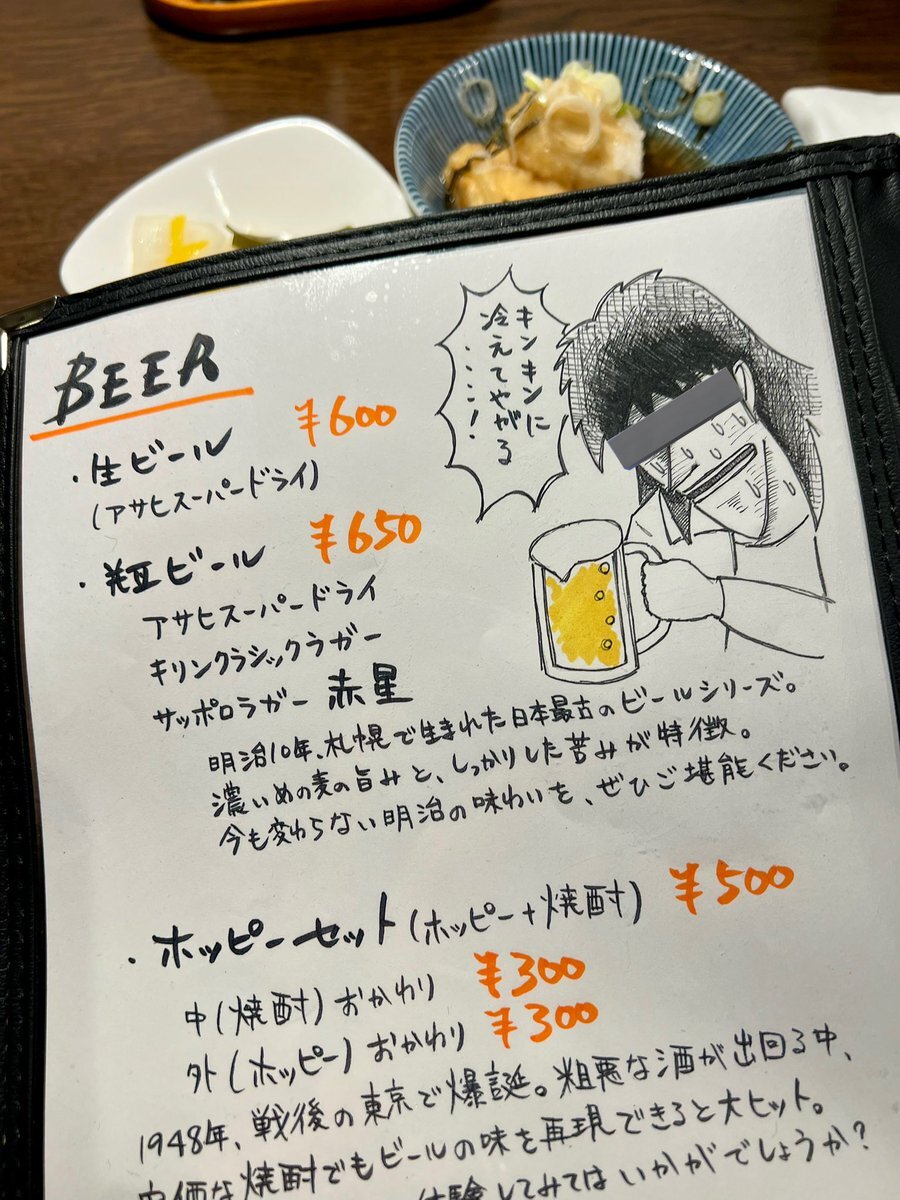 BEER
・生ビール ¥600
(アサヒスーパードライ)
・瓶ビール ¥650
アサヒスーパードライ
キリンクラシックラガー
サッポロラガー 赤星
明治10年、札幌で生まれた日本最古のビールシリーズ。
濃いめの麦の旨みと、しっかりした苦みが特徴。
今も変わらない明治の味わいを、ぜひご堪能ください。
キンキンに
冷えてやがる
・・・・・!
・ホッピーセット(ホッピー+焼酎) ¥500
中(焼酎)おかわり ¥300
外(ホッピー)おかわり ¥300
1948年、戦後の東京で爆誕。粗悪な酒が出回る中、
安価な焼酎でもビールの味を再現できると大ヒット。
体験してみてはいかがでしょうか?